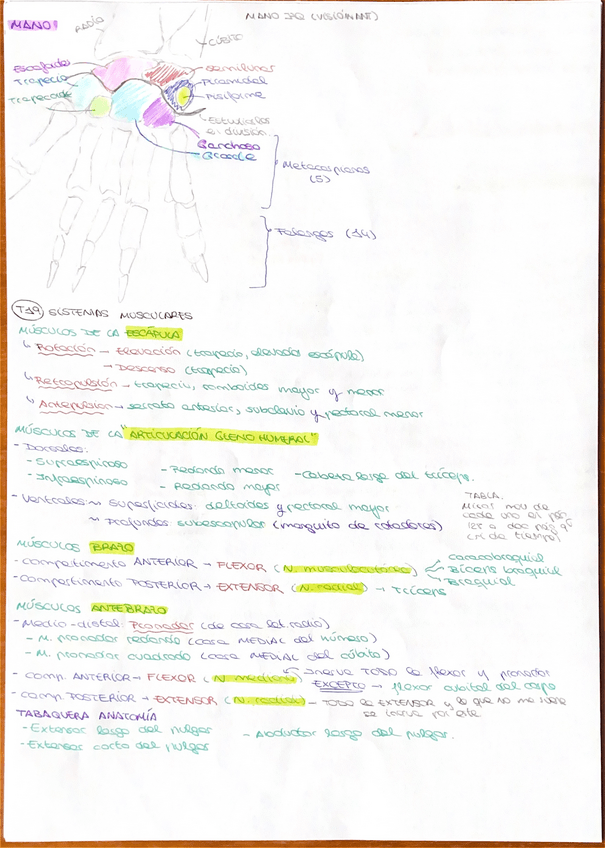 MANO IZQ (VISIÓN ANT)
MANO:
RADIO
CÚBITO
Escafoides
Semilunar
Trapecio
Piramidal
Trapezoide
Pisiforme
Ganchoso
Grande
Metacarpianos
(5)
Falanges (14)
T19 SISTEMAS MUSCULARES
MÚSCULOS DE LA ESCÁPULA
↳ Rotación → Elevación (trapecio, elevador escápula)
→ Descenso (trapecio)
↳ Retropulsión → trapecio, romboides mayor y menor
↳ Antepulsión → serrato anterior, subclavio y pectoral menor
MÚSCULOS DE LA "ARTICULACIÓN GLENO HUMERAL"
- Dorsales:
- Supraespinoso - Redondo menor - Cabeza larga del tríceps.
- Infraespinoso - Redondo mayor
- Ventrales ~ Superficiales: deltoides y pectoral mayor
~ Profundos subescapular (manguito de rotadores)
TABLA.
Mirar mov de
cada uno en pág
MÚSCULOS BRAZO
- Compartimento ANTERIOR → FLEXOR (N. musculocutáneo)
coracobraquial
Bíceps braquial
Braquial
- Compartimento POSTERIOR → EXTENSOR (N. radial) → Tríceps
MÚSCULOS ANTEBRAZO
- Medio-distal: Pronador (de cara lat. radio)
- M. pronador redondo (cara MEDIAL del húmero)
- M. pronador cuadrado (cara MEDIAL del cúbito)
- comp. ANTERIOR → FLEXOR (N. mediano) inerva TODO le flexor y pronador
EXCEPTO → flexor cubital del carpo
- comp. POSTERIOR → EXTENSOR (N. radial) - TODO le EXTENSOR y lo que no
TABAQUERA ANATOMÍA
- Extensor largo del pulgar - Abductor largo del pulgar.
- Extensor corto del pulgar